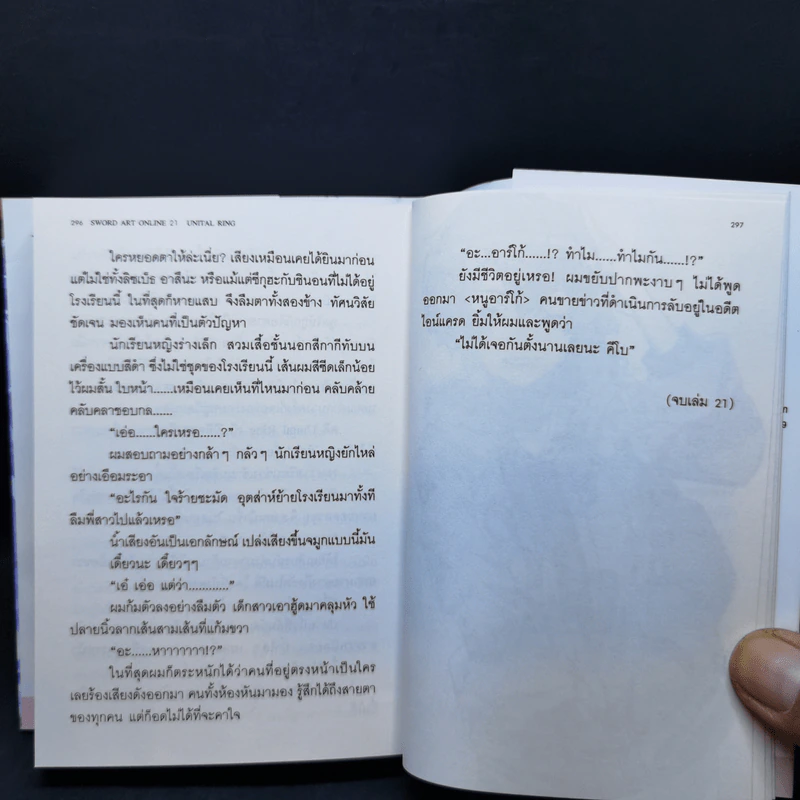 296 SWORD ART ONLINE 21 UNITAL RING
ใครหยอดตาให้ล่ะเนี่ย? เสียงเหมือนเคยได้ยินมาก่อน
แต่ไม่ใช่ทั้งลิซเบ็ธ อาสึนะ หรือแม้แต่ซึกุฮะกับชินอนที่ไม่ได้อยู่
โรงเรียนนี้ ในที่สุดก็หายแสบ จึงลืมตาทั้งสองข้าง ทัศนวิสัย
ชัดเจน มองเห็นคนที่เป็นตัวปัญหา
นักเรียนหญิงร่างเล็ก สวมเสื้อชั้นนอกสีกากีทับบน
เครื่องแบบสีดำ ซึ่งไม่ใช่ชุดของโรงเรียนนี้ เส้นผมสีซีดเล็กน้อย
ไว้ผมสั้น ใบหน้า......เหมือนเคยเห็นที่ไหนมาก่อน คลับคล้าย
คลับคลาชอบกล......
“เอ่อ......ใครเหรอ......?”
ผมสอบถามอย่างกล้าๆ กลัวๆ นักเรียนหญิงยักไหล่
อย่างเอือมระอา
“อะไรกัน ใจร้ายชะมัด อุตส่าห์ย้ายโรงเรียนมาทั้งที
ลืมพี่สาวไปแล้วเหรอ”
น้ำเสียงอันเป็นเอกลักษณ์ เปล่งเสียงขึ้นจมูกแบบนี้มัน
เดี๋ยวนะ เดี๋ยวๆๆ
“เอ๋ เอ่อ แต่ว่า............”
ผมก้มตัวลงอย่างลืมตัว เด็กสาวเอาฮู้ดมาคลุมหัว ใช้
ปลายนิ้วลากเส้นสามเส้นที่แก้มขวา
“อะ......หาาาาาาา!?”
ในที่สุดผมก็ตระหนักได้ว่าคนที่อยู่ตรงหน้าเป็นใคร
เลยร้องเสียงดังออกมา คนทั้งห้องหันมามอง รู้สึกได้ถึงสายตา
ของทุกคน แต่ก็อดไม่ได้ที่จะคาใจ
297
“อะ...อาร์โก้......!? ทำไม......ทำไมกัน......!?”
ยังมีชีวิตอยู่เหรอ! ผมขยับปากพะงาบๆ ไม่ได้พูด
ออกมา <หนูอาร์โก้> คนขายข่าวที่ดำเนินการลับอยู่ในอดีต
ไอน์แครด ยิ้มให้ผมและพูดว่า
“ไม่ได้เจอกันตั้งนานเลยนะ คีโบ”
(จบเล่ม 21)